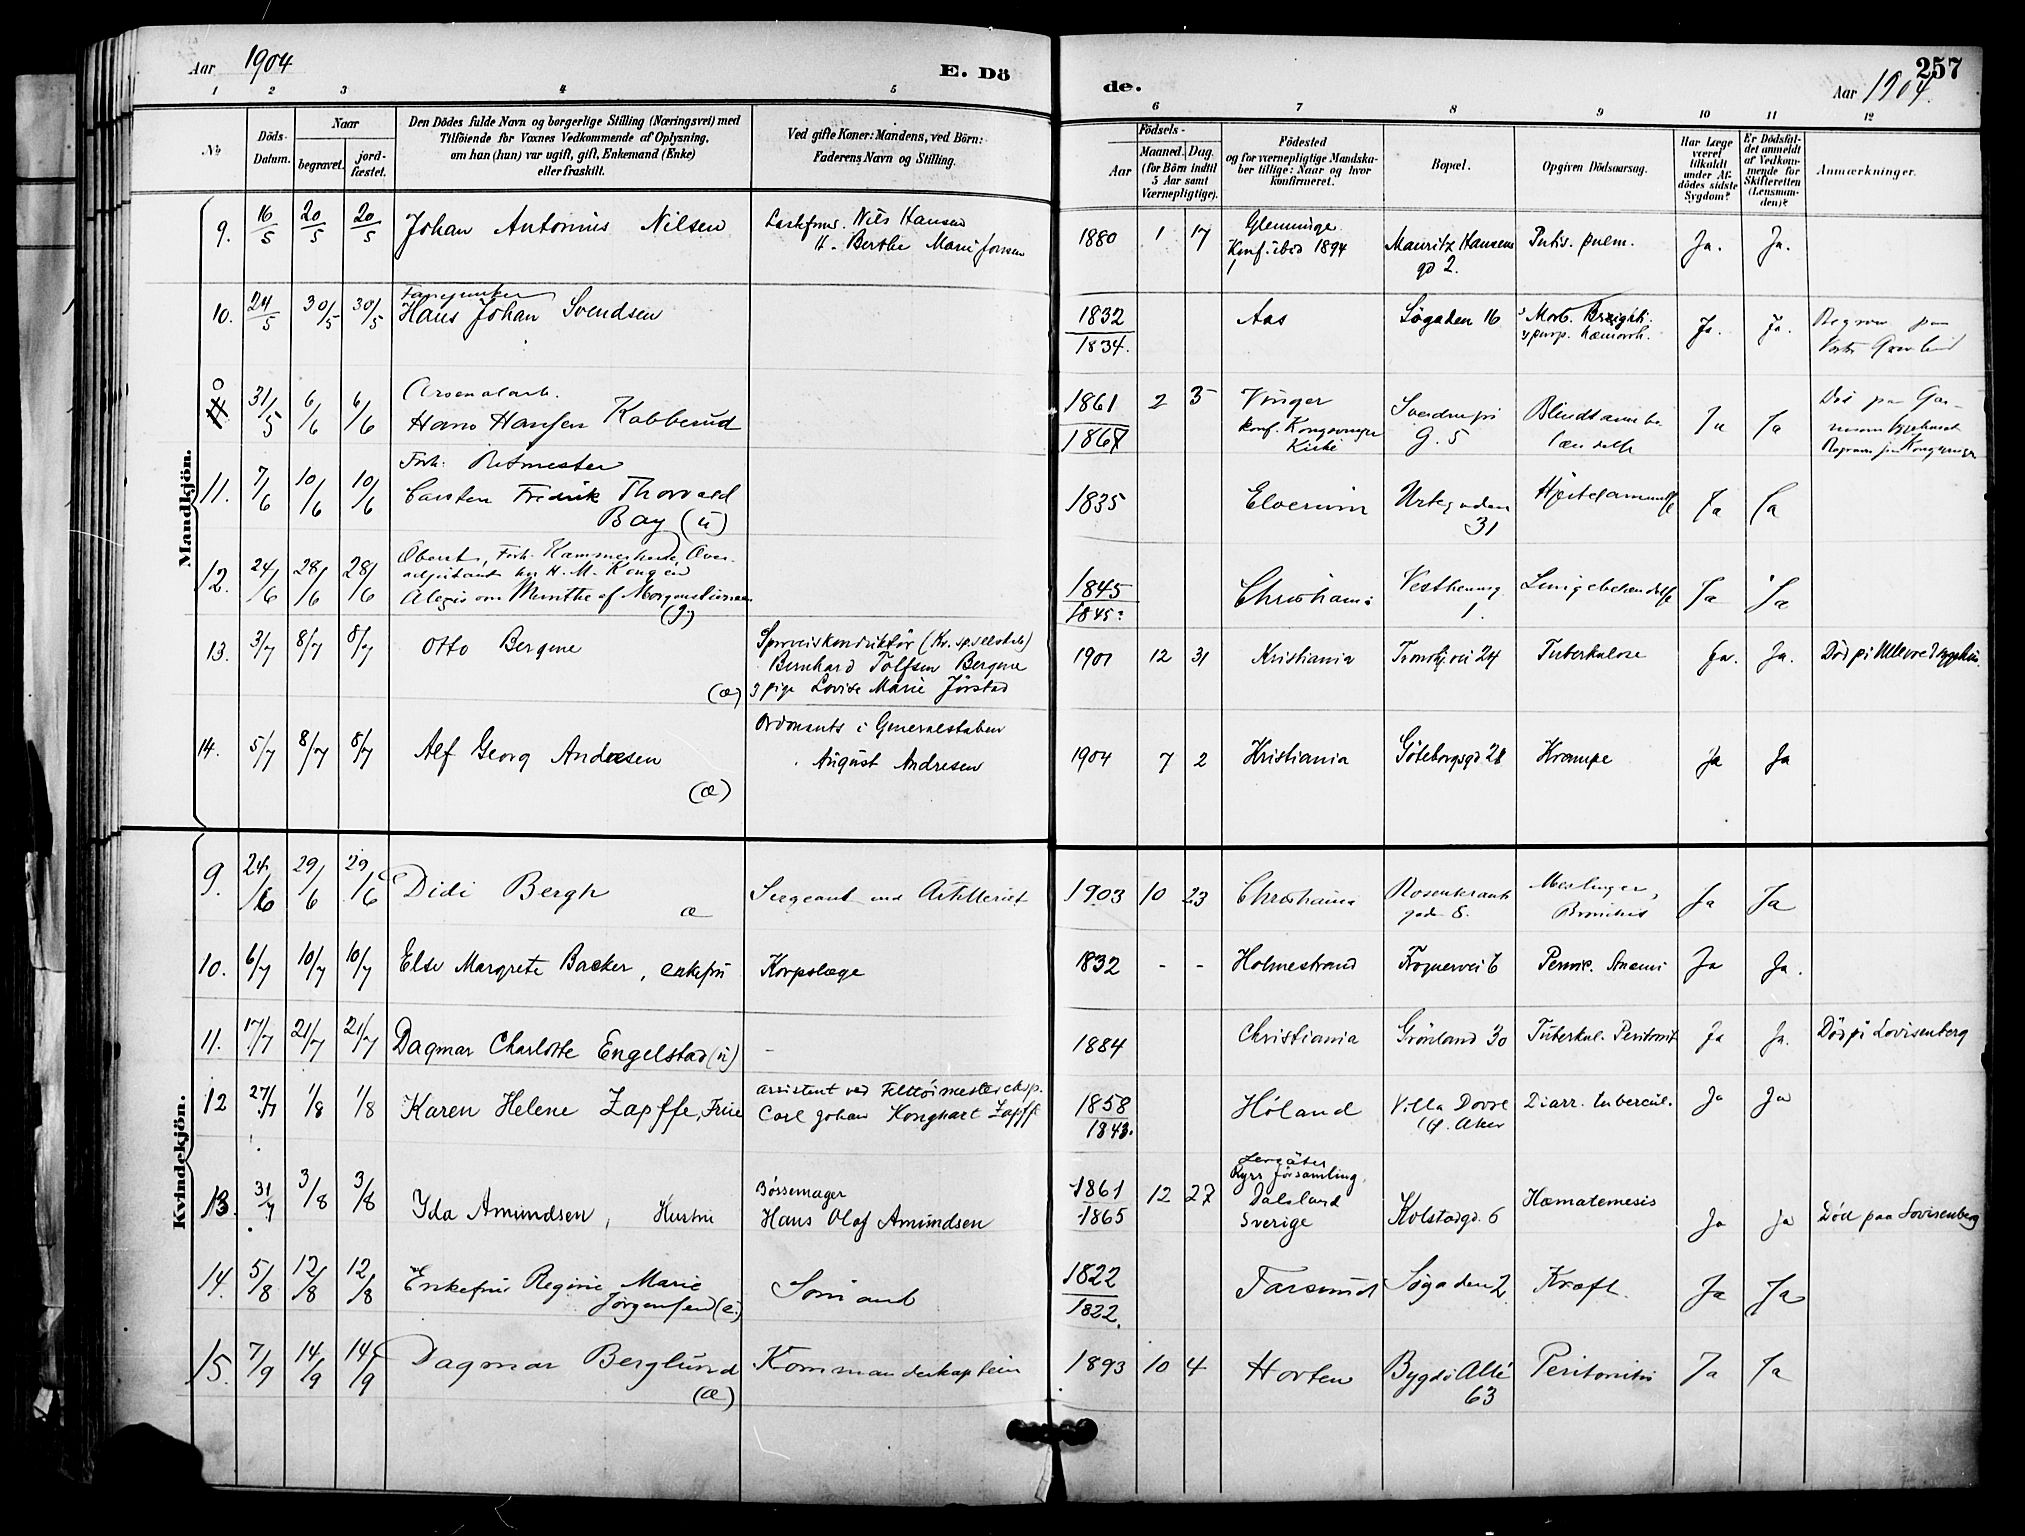 Aar 1904
E. Dö
de.
257
Aar 1904.
1 2 3 4 5 6 7 8 9 10 11 12
No
Döds-
Datum.
Naar
begravet.
jord-
fæstet.
Den Dödes fulde Navn og borgerlige Stilling (Næringsvei) med
Tilföiende for Voxnes Vedkommende af Oplysning,
om han (hun) var ugift, gift, Enkemand (Enke)
eller fraskilt.
Ved gifte Koner: Mandens, ved Börn:
Faderens Navn og Stilling.
Födsels-
Aar
Maaned.
Dag.
(for Börn indtil
5 Aar samt
Værnepligtige).
Födested
og for værnepligtige Mandska-
ber tillige: Naar og hvor
konfirmeret.
Bopæl.
Opgiven Dödsaarsag.
Har Læge
været
tilkaldt
under Af-
dödes sidste
Sygdom?
Er Dödsfal-
det anmeldt
af Vedkom-
mende for
Skifteretten
(Lensman-
den)?
Anmærkninger.
Mandkjön.
9. 16/5 20/5 20/5 Johan Antonius Nilsen
Nils Hansen
Berthe Marie
1880 1 17
Glemminge
Konf. ibid 1894
Mauritz Hansens
gd 2.
pulm.
Ja. Ja.
10. 24/5 30/5 30/5
Hans Johan Svendsen
1832
1834.
Aas
Søgaden 16
Morb. Brightii.
purp. hæmorrh.
Ja. Ja.
31/5 6/6 6/6
Arsenalarb.
Hans Hansen Kobberud
1861
1867
2 5
Vinger
konf. Kongsvinger
Kirke
G. 5
Ja Ja
11. 7/6 10/6 10/6
Forh. Ritmester
Carsten Fredrik Thorvald
Bay (u)
1835
Elverum
Urtegaden
31
Ja Ja
12. 24/6 28/6 28/6
Oberst, Forh. Kammerherre, Over-
adjutant hos H. M. Kongen
Munthe af Morgenstierne
(g)
1845
1845?
Christiania
1.
Ja Ja
13. 3/7 8/7 8/7 Otto Bergene
(æ)
Sporveiskonduktør (Kr. sp.selskab)
Bernhard Tolfsen Bergene
pige Lovise Marie Jørstad
1901 12 31
Kristiania
24
Tuberkulose
Ja. Ja.
Død på Ullevold sygehus.
14. 5/7 8/7 8/7 Alf Georg Andresen
(æ)
Ordonants i Generalstaben
August Andresen
1904 7 2
Kristiania
Göteborgsgd 28
Krampe
Ja Ja
Kvindekjön.
9. 24/6 29/6 29/6 Didi Bergh
æ
Sergeant ved Artilleriet
1903 10 23
Christiania
Rosenkrantz
gade 8.
Meslinger,
Ja Ja
10. 6/7 10/7 10/7 Else Margrete Backer, enkefru
Korpslæge
1832 - -
Holmestrand
Frognervei 6
Pernic. Anæmi
Ja Ja.
11. 17/7 21/7 21/7 Dagmar Charlotte Engelstad (u)
-
1884
Christiania
Grönland 30
Tuberkul. Peritonit
Ja Ja.
Död på Lovisenberg
12 27/7 1/8 1/8 Karen Helene Zapffe, Frue
assistent ved Felttöimesterexp.
Carl Johan Zapffe
1858
1843.
Høland
Villa Dovre
Aker
Diarr. tubercul.
Ja Ja
13. 31/7 3/8 3/8 Ida Amundsen, Hustru
Børsemager
Hans Olaf Amundsen
1861
1865
12 27
församling,
Dalsland
Sverige
Kolstadgd. 6
Hæmatemesis
Ja Ja
Död paa Lovisenberg
14. 5/8 12/8 12/8
Enkefru Regine Marie
Jørgensen (e.)
1822
1822.
Farsund
Søgaden 2
Kræft.
Ja Ja
15. 7/9 14/9 14/9 Dagmar Berglund
(æ)
Kommandørkaptein
1893 10 4
Horten
Bygdö Allé
63
Peritonitis
Ja Ja